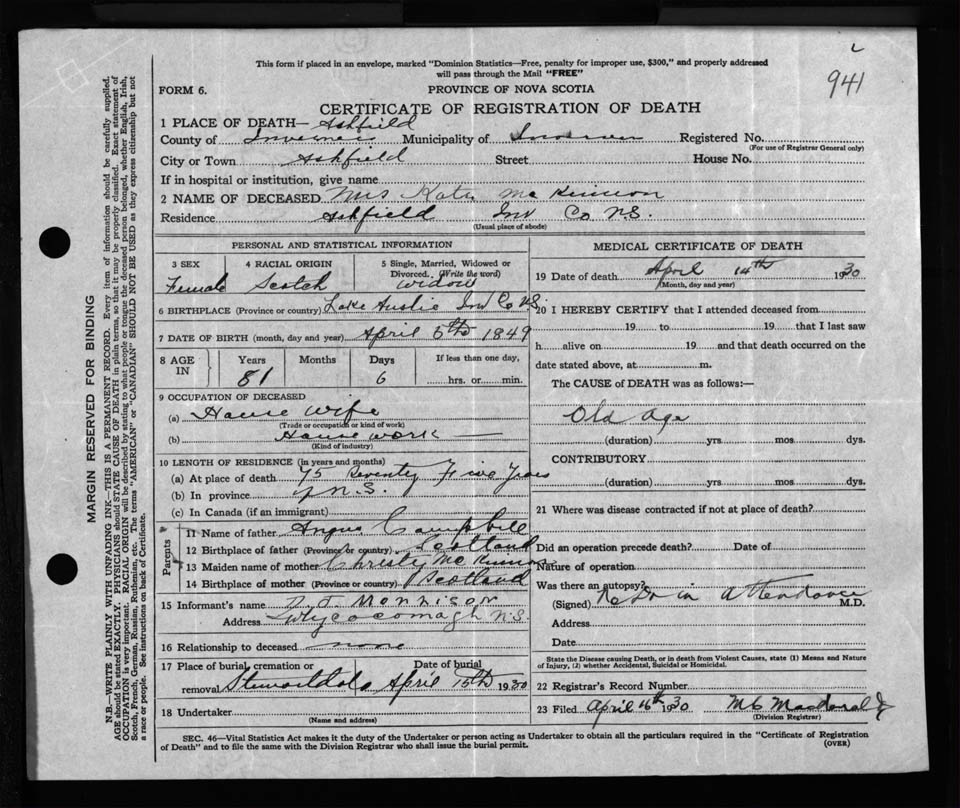 2
941
This form if placed in an envelope, marked "Dominion Statistics—Free, penalty for improper use, $300," and properly addressed
will pass through the Mail "FREE"
FORM 6.
PROVINCE OF NOVA SCOTIA
CERTIFICATE OF REGISTRATION OF DEATH
1 PLACE OF DEATH— Ashfield
County of Inverness Municipality of Inverness Registered No.
(For use of Registrar General only)
City or Town Ashfield Street House No.
If in hospital or institution, give name
2 NAME OF DECEASED Mrs Kate McKinnon
Residence Ashfield Inv Co N.S.
(Usual place of abode)
PERSONAL AND STATISTICAL INFORMATION
3 SEX 4 RACIAL ORIGIN 5 Single, Married, Widowed or
Divorced. (Write the word)
Female Scotch Widow
6 BIRTHPLACE (Province or country) Lake Ainslie Inv Co N.S.
7 DATE OF BIRTH (month, day and year) April 5th 1849
8 AGE IN Years Months Days If less than one day,
81 6 hrs. or min.
9 OCCUPATION OF DECEASED
(a) House wife
(Trade or occupation or kind of work)
(b) House work
(Kind of industry)
10 LENGTH OF RESIDENCE (in years and months)
(a) At place of death 75 Seventy Five Years
(b) In province N.S.
(c) In Canada (if an immigrant)
Parents
11 Name of father Angus Campbell
12 Birthplace of father (Province or country) Scotland
13 Maiden name of mother Christy McKinnon
14 Birthplace of mother (Province or country) Scotland
15 Informant's name D. J. Morrison
Address Whycocomagh N.S.
16 Relationship to deceased none
17 Place of burial, cremation or Date of burial
removal Stewartdale April 15th 1930
18 Undertaker
(Name and address)
MEDICAL CERTIFICATE OF DEATH
19 Date of death April 14th 1930
(Month, day and year)
20 I HEREBY CERTIFY that I attended deceased from
19 to 19 that I last saw
h alive on 19 and that death occurred on the
date stated above, at m.
The CAUSE of DEATH was as follows:—
Old Age
(duration) yrs. mos. dys.
CONTRIBUTORY
(duration) yrs. mos. dys.
21 Where was disease contracted if not at place of death?
Did an operation precede death? Date of
Nature of operation
Was there an autopsy?
(Signed) No Dr in attendance M.D.
Address
Date
State the Disease causing Death, or in death from Violent Causes, state (1) Means and Nature
of Injury, (2) whether Accidental, Suicidal or Homicidal.
22 Registrar's Record Number
23 Filed April 16th 1930 Macdonald
(Division Registrar)
SEC. 46—Vital Statistics Act makes it the duty of the Undertaker or person acting as Undertaker to obtain all the particulars required in the "Certificate of Registration
of Death" and to file the same with the Division Registrar who shall issue the burial permit.
(OVER)
MARGIN RESERVED FOR BINDING
N.B.—WRITE PLAINLY WITH UNFADING INK—THIS IS A PERMANENT RECORD. Every item of information should be carefully supplied.
AGE should be stated EXACTLY. PHYSICIANS should STATE CAUSE OF DEATH in plain terms, so that it may be properly classified. Exact statement of
OCCUPATION is very important. RACIAL ORIGIN will be described by stating to what people or tongue the deceased person belonged, whether English, Irish,
Scotch, French, German, Russian, Ruthenian, etc. The terms "AMERICAN" or "CANADIAN" SHOULD NOT BE USED as they express citizenship but not
a race or people. See instructions on back of Certificate.